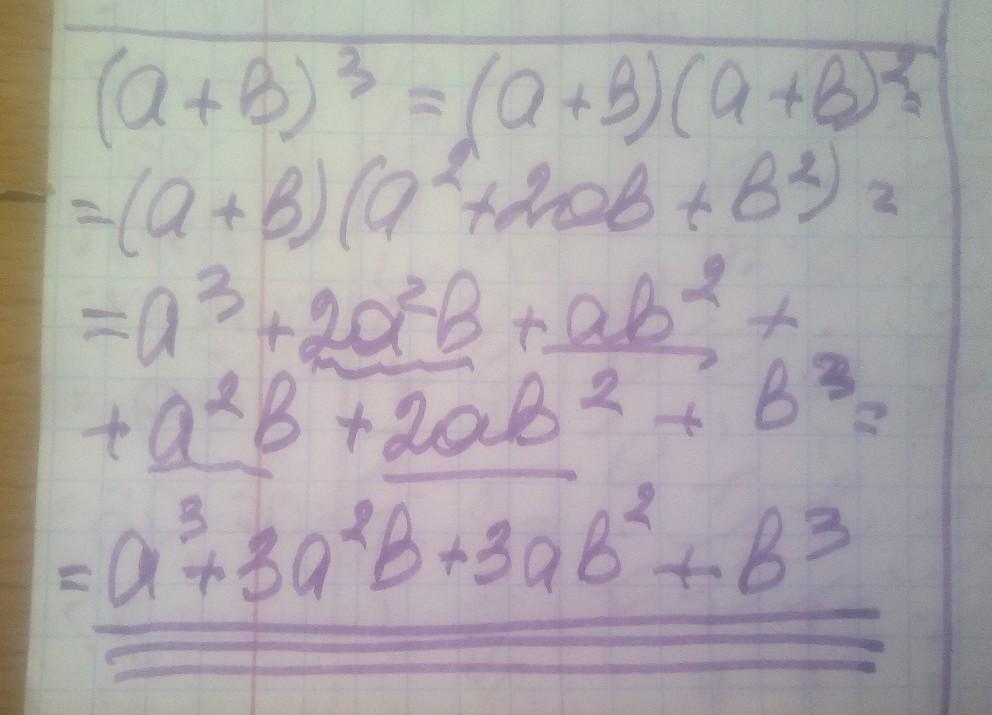 (a + b)³ = (a + b)(a + b)² =
= (a + b)(a² + 2ab + b²) =
= a³ + 2a²b + ab² +
+ a²b + 2ab² + b³ =
= a³ + 3a²b + 3ab² + b³